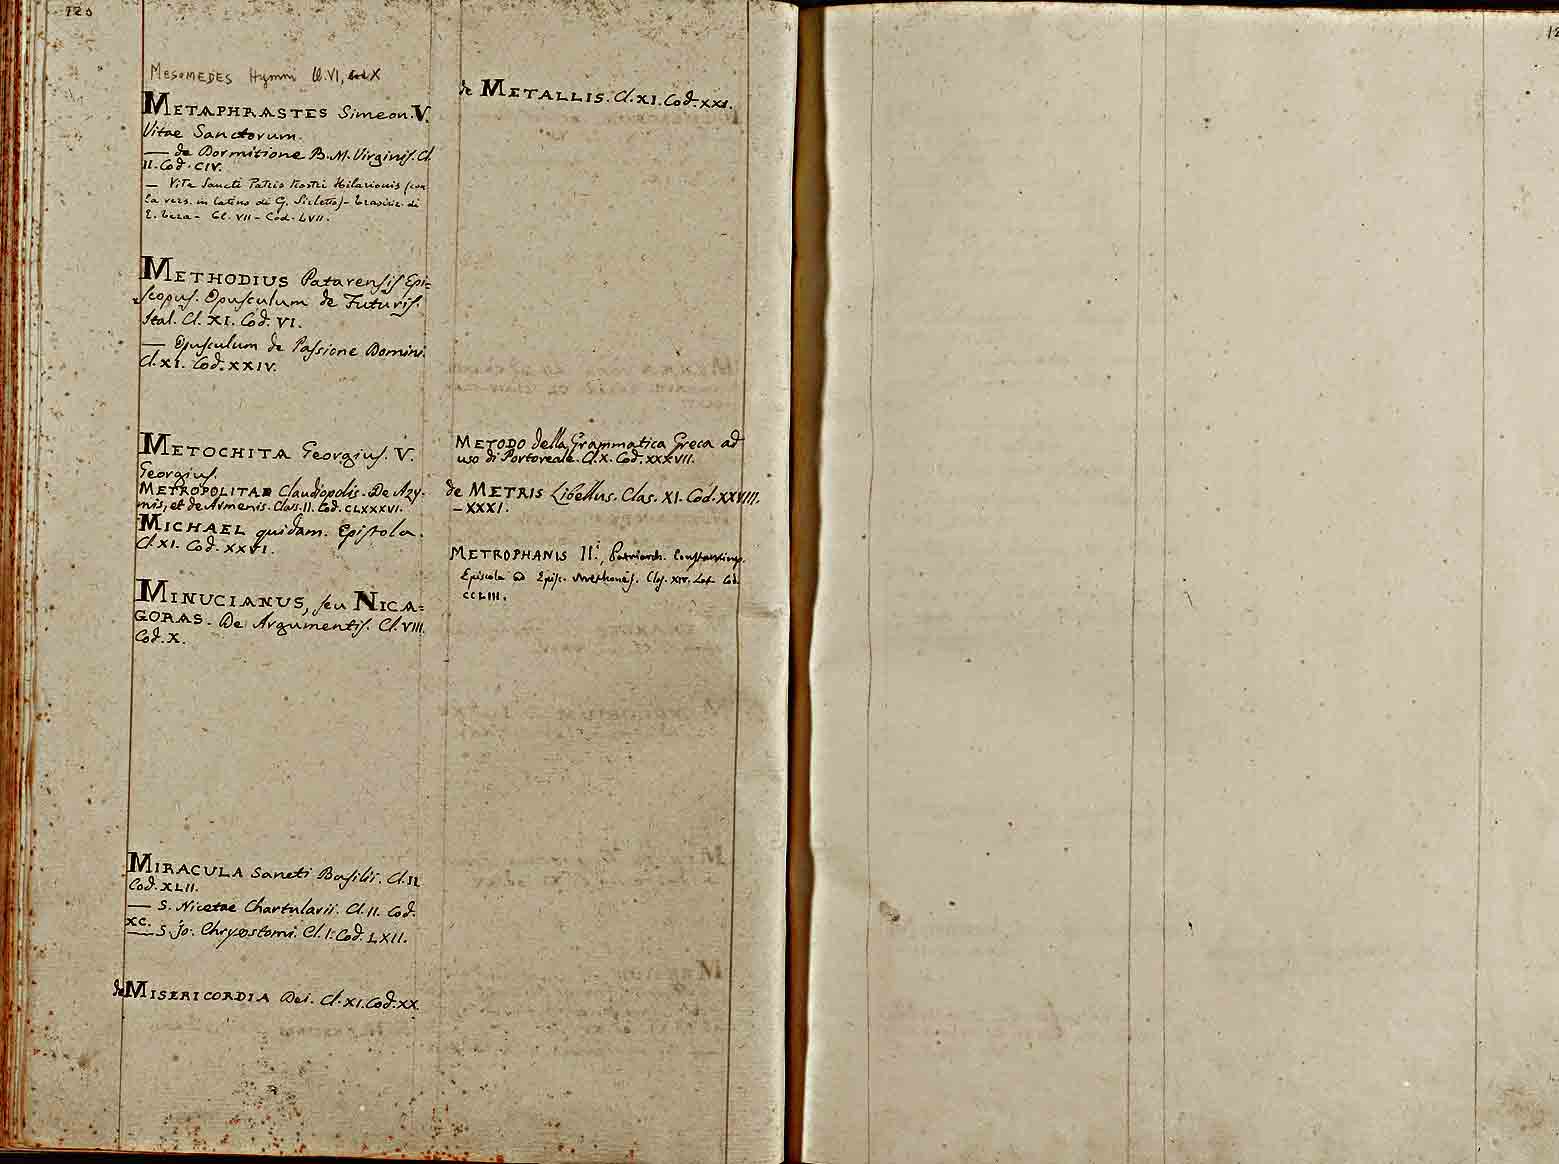 120
MESOMEDES Hymni Cl. VI, X
METAPHRASTES Simeon. V.
Vitae Sanctorum.
— de Dormitione B. M. Virginis. Cl.
II. Cod. CIV.
— Vita Sancti Patris Nostri Hilarionis (con
la vers. in latino di G. Sirletto) - di
Cl. VII - Cod. LVII.
METHODIUS Patarensis Epi=
scopus. Opusculum de Futuris.
Ital. Cl. XI. Cod. VI.
— Opusculum de Passione Domini.
Cl. XI. Cod. XXIV.
METOCHITA Georgius. V.
Georgius.
METROPOLITAE Claudiopolis. De Azy-
mis, et de Armenis. Clas. II. Cod. CLXXXVI.
MICHAEL quidam. Epistola.
Cl. XI. Cod. XXVI.
MINUCIANUS, seu NICA=
GORAS. De Argumentis. Cl. VIII.
Cod. X.
MIRACULA Sancti Basilii. Cl. II
Cod. XLII.
— S. Nicetae Chartularii. Cl. II. Cod.
XC.
— S. Jo: Chrysostomi. Cl. I. Cod. LXII.
de MISERICORDIA Dei. Cl. XI. Cod. XX
de METALLIS. Cl. XI. Cod. XXI.
METODO della Grammatica Greca ad
uso di Portoreale. Cl. X. Cod. XXXVII.
de METRIS Libellus. Clas. XI. Cod. XXVIII.
— XXXI.
METROPHANIS II.i, Patriarch. Constantinop.
Epistola ad Episc. Methones. Clas. XIV. Lat. Cod.
CCLIII.